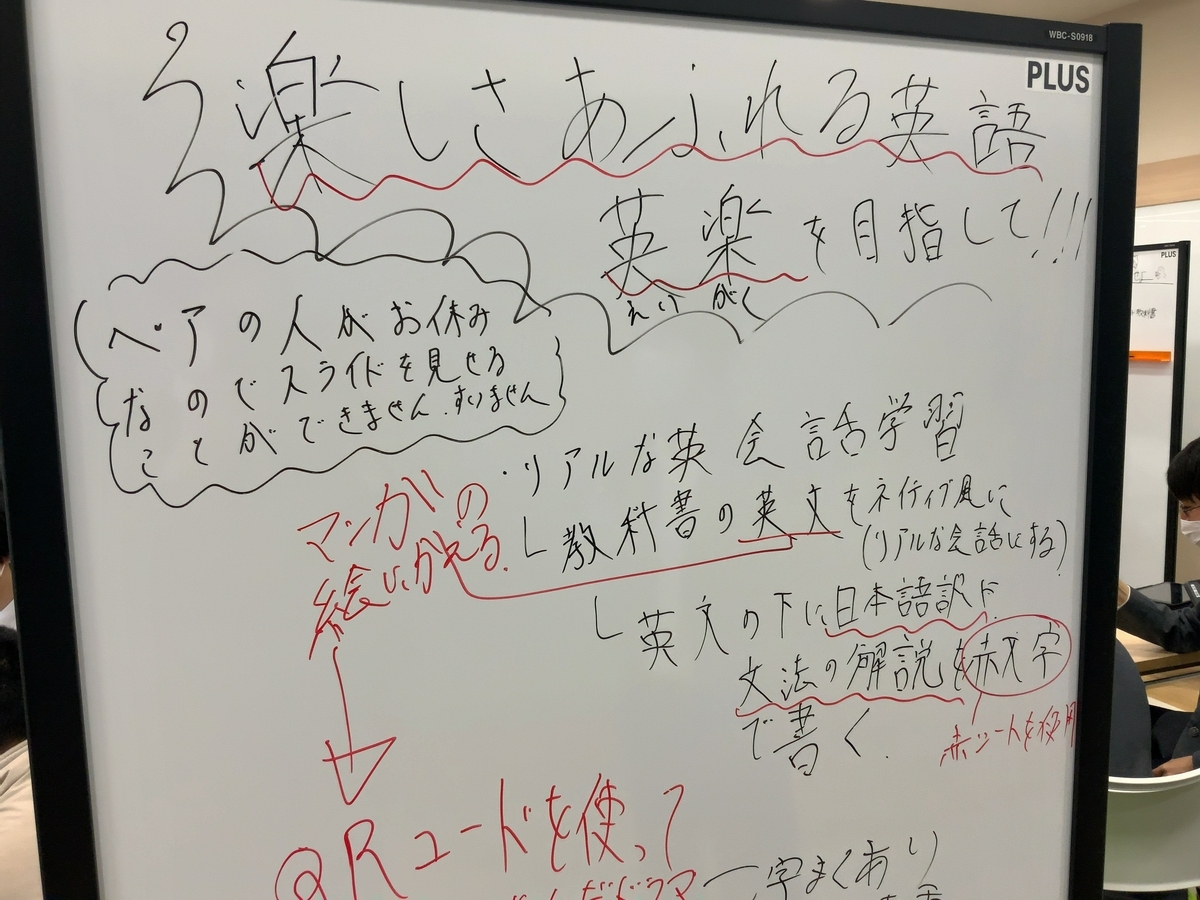 WBC-S0918
PLUS
楽しさあふれる英語
英楽を目指して!!!
えいがく
ペアの人がお休み
なのでスライドを見せる
ことができません.すいません
・リアルな英会話学習
教科書の英文をネイティブ風に
(リアルな会話にする)
マンガの
絵にかえる.
英文の下に日本語訳と
文法の解説を赤文字
で書く.
赤シートを使用
QRコードを使って
字まくあり
PLUS